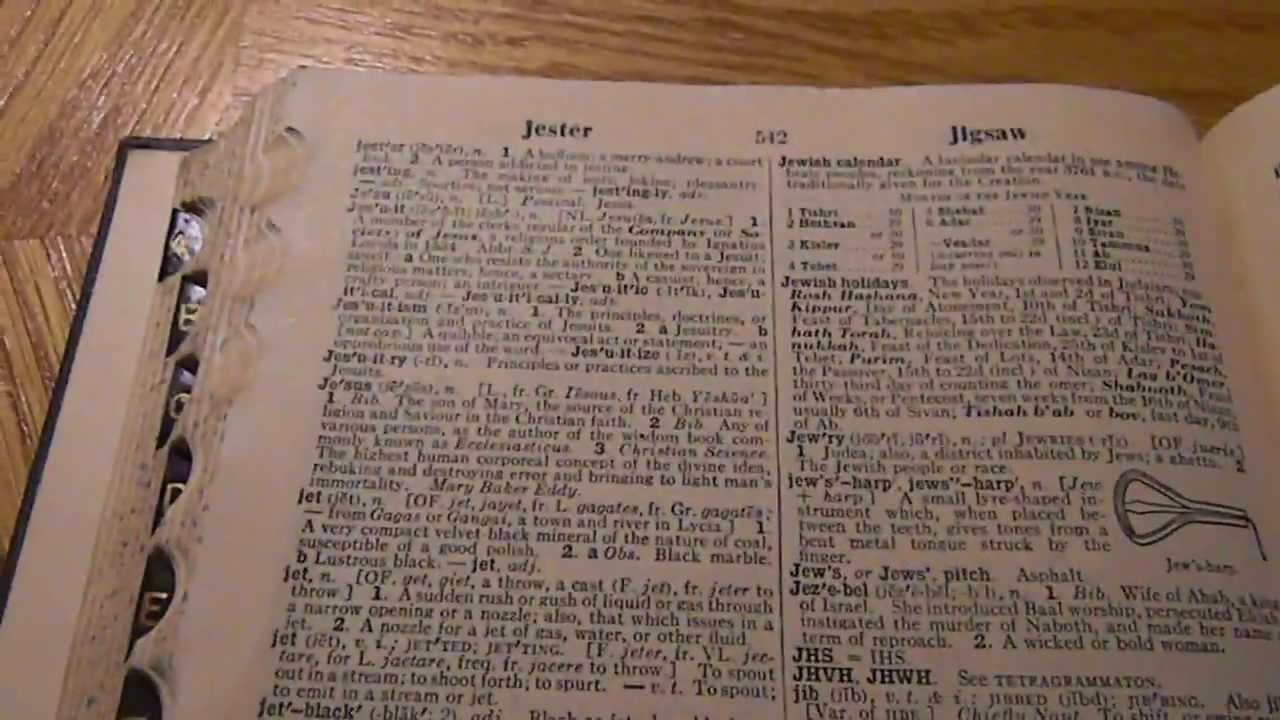 Jester 542 Jigsaw
jest'er n. 1. A buffoon; a merry-andrew; a court
fool. 2. A person addicted to jesting.
jest'ing, n. The making of jests; joking; pleasantry.
— adj. Sportive; not serious. — jest'ing·ly, adv.
Je'su n. [L.] Poetical. Jesus.
Jes'u·it n. [NL. Jesuita, fr. Jesus.] 1.
A member of the clerks regular of the Company or So-
ciety of Jesus, a religious order founded by Ignatius
Loyola in 1534. Abbr. S. J. 2. One likened to a Jesuit;
a One who resists the authority of the sovereign in
religious matters, hence, a sectary. b A casuist; hence, a
crafty person; an intriguer. — Jes'u·it'ic (-ĭt'ĭk), Jes'u-
it'i·cal, adj. — Jes'u·it'i·cal·ly, adv.
Jes'u·it·ism n. 1. The principles, doctrines, or
organization and practice of Jesuits. 2. a Jesuitry. b
[not cap.] A quibble; an equivocal act or statement; — an
opprobrious use of the word. — Jes'u·it·ize (-īz), v. t. & i.
Jes'u·it·ry (-rĭ), n. Principles or practices ascribed to the
Jesuits.
Je'sus (jē'zŭs), n. [L., fr. Gr. Iēsous, fr. Heb. Yēshūa'.]
1. Bib. The son of Mary, the source of the Christian re-
ligion and Saviour in the Christian faith. 2. Bib. Any of
various persons, as the author of the wisdom book com-
monly known as Ecclesiasticus. 3. Christian Science.
The highest human corporeal concept of the divine idea,
rebuking and destroying error and bringing to light man's
immortality. Mary Baker Eddy.
jet (jĕt), n. [OF. jet, jayet, fr. L. gagates, fr. Gr. gagatēs;
— from Gagas or Gangai, a town and river in Lycia.] 1.
A very compact velvet-black mineral of the nature of coal,
susceptible of a good polish. 2. a Obs. Black marble.
b Lustrous black. — jet, adj.
jet, n. [OF. get, giet, a throw, a cast (F. jet), fr. jeter to
throw.] 1. A sudden rush or gush of liquid or gas through
a narrow opening or a nozzle; also, that which issues in a
jet. 2. A nozzle for a jet of gas, water, or other fluid.
jet (jĕt), v. i.; JET'TED; JET'TING. [F. jeter, fr. VL. jec-
tare, for L. jactare, freq. fr. jacere to throw.] To spout
out in a stream; to shoot forth; to spurt. — v. t. To spout;
to emit in a stream or jet.
jet'-black' (-blăk'; 2), adj. Black as jet
Jewish calendar. A lunisolar calendar in use among He-
brew peoples, reckoning from the year 3761 B.C., the date
traditionally given for the Creation.
MONTHS OF THE JEWISH YEAR
1 Tishri 30
2 Heshvan 29
or 30
3 Kislev 29
or 30
4 Tebet 29
5 Shebat 30
6 Adar 29
or 30
Veadar 29
7 Nisan 30
8 Iyar 29
9 Sivan 30
10 Tammuz 29
11 Ab 30
12 Elul 29
Jewish holidays. The holidays observed in Judaism,
Rosh Hashana, New Year, 1st and 2d of Tishri; Yom
Kippur, Day of Atonement, 10th of Tishri; Sukkoth,
Feast of Tabernacles, 15th to 22d (incl.) of Tishri; Sim-
hath Torah, Rejoicing over the Law, 23d of Tishri; Ha-
nukkah, Feast of the Dedication, 25th of Kislev to 1st of
Tebet; Purim, Feast of Lots, 14th of Adar; Pesach,
the Passover, 15th to 22d (incl.) of Nisan; Lag b'Omer,
thirty-third day of counting the omer; Shabuoth, Feast
of Weeks, or Pentecost, seven weeks from the 16th of Nisan,
usually 6th of Sivan; Tishah b'ab or bov, fast day, 9th
of Ab.
Jew'ry n.; pl. JEWRIES (-rĭz). [OF. juerie.]
1. Judea; also, a district inhabited by Jews; a ghetto. 2.
The Jewish people or race.
jew's'-harp', jews''-harp', n. [Jew
+ harp.] A small lyre-shaped in-
strument which, when placed be-
tween the teeth, gives tones from a
bent metal tongue struck by the
finger.
Jew's-harp.
Jew's, or Jews', pitch. Asphalt.
Jez'e·bel n. 1. Bib. Wife of Ahab, a king
of Israel. She introduced Baal worship, persecuted Elijah,
instigated the murder of Naboth, and made her name
term of reproach. 2. A wicked or bold woman.
JHS. = IHS.
JHVH, JHWH. See TETRAGRAMMATON.
jib (jĭb), v. t. & i.; JIBBED (jĭbd); JIB'BING. Also
[Var. of JIBE.] Chiefly Naut. To shift
B
C
D
E